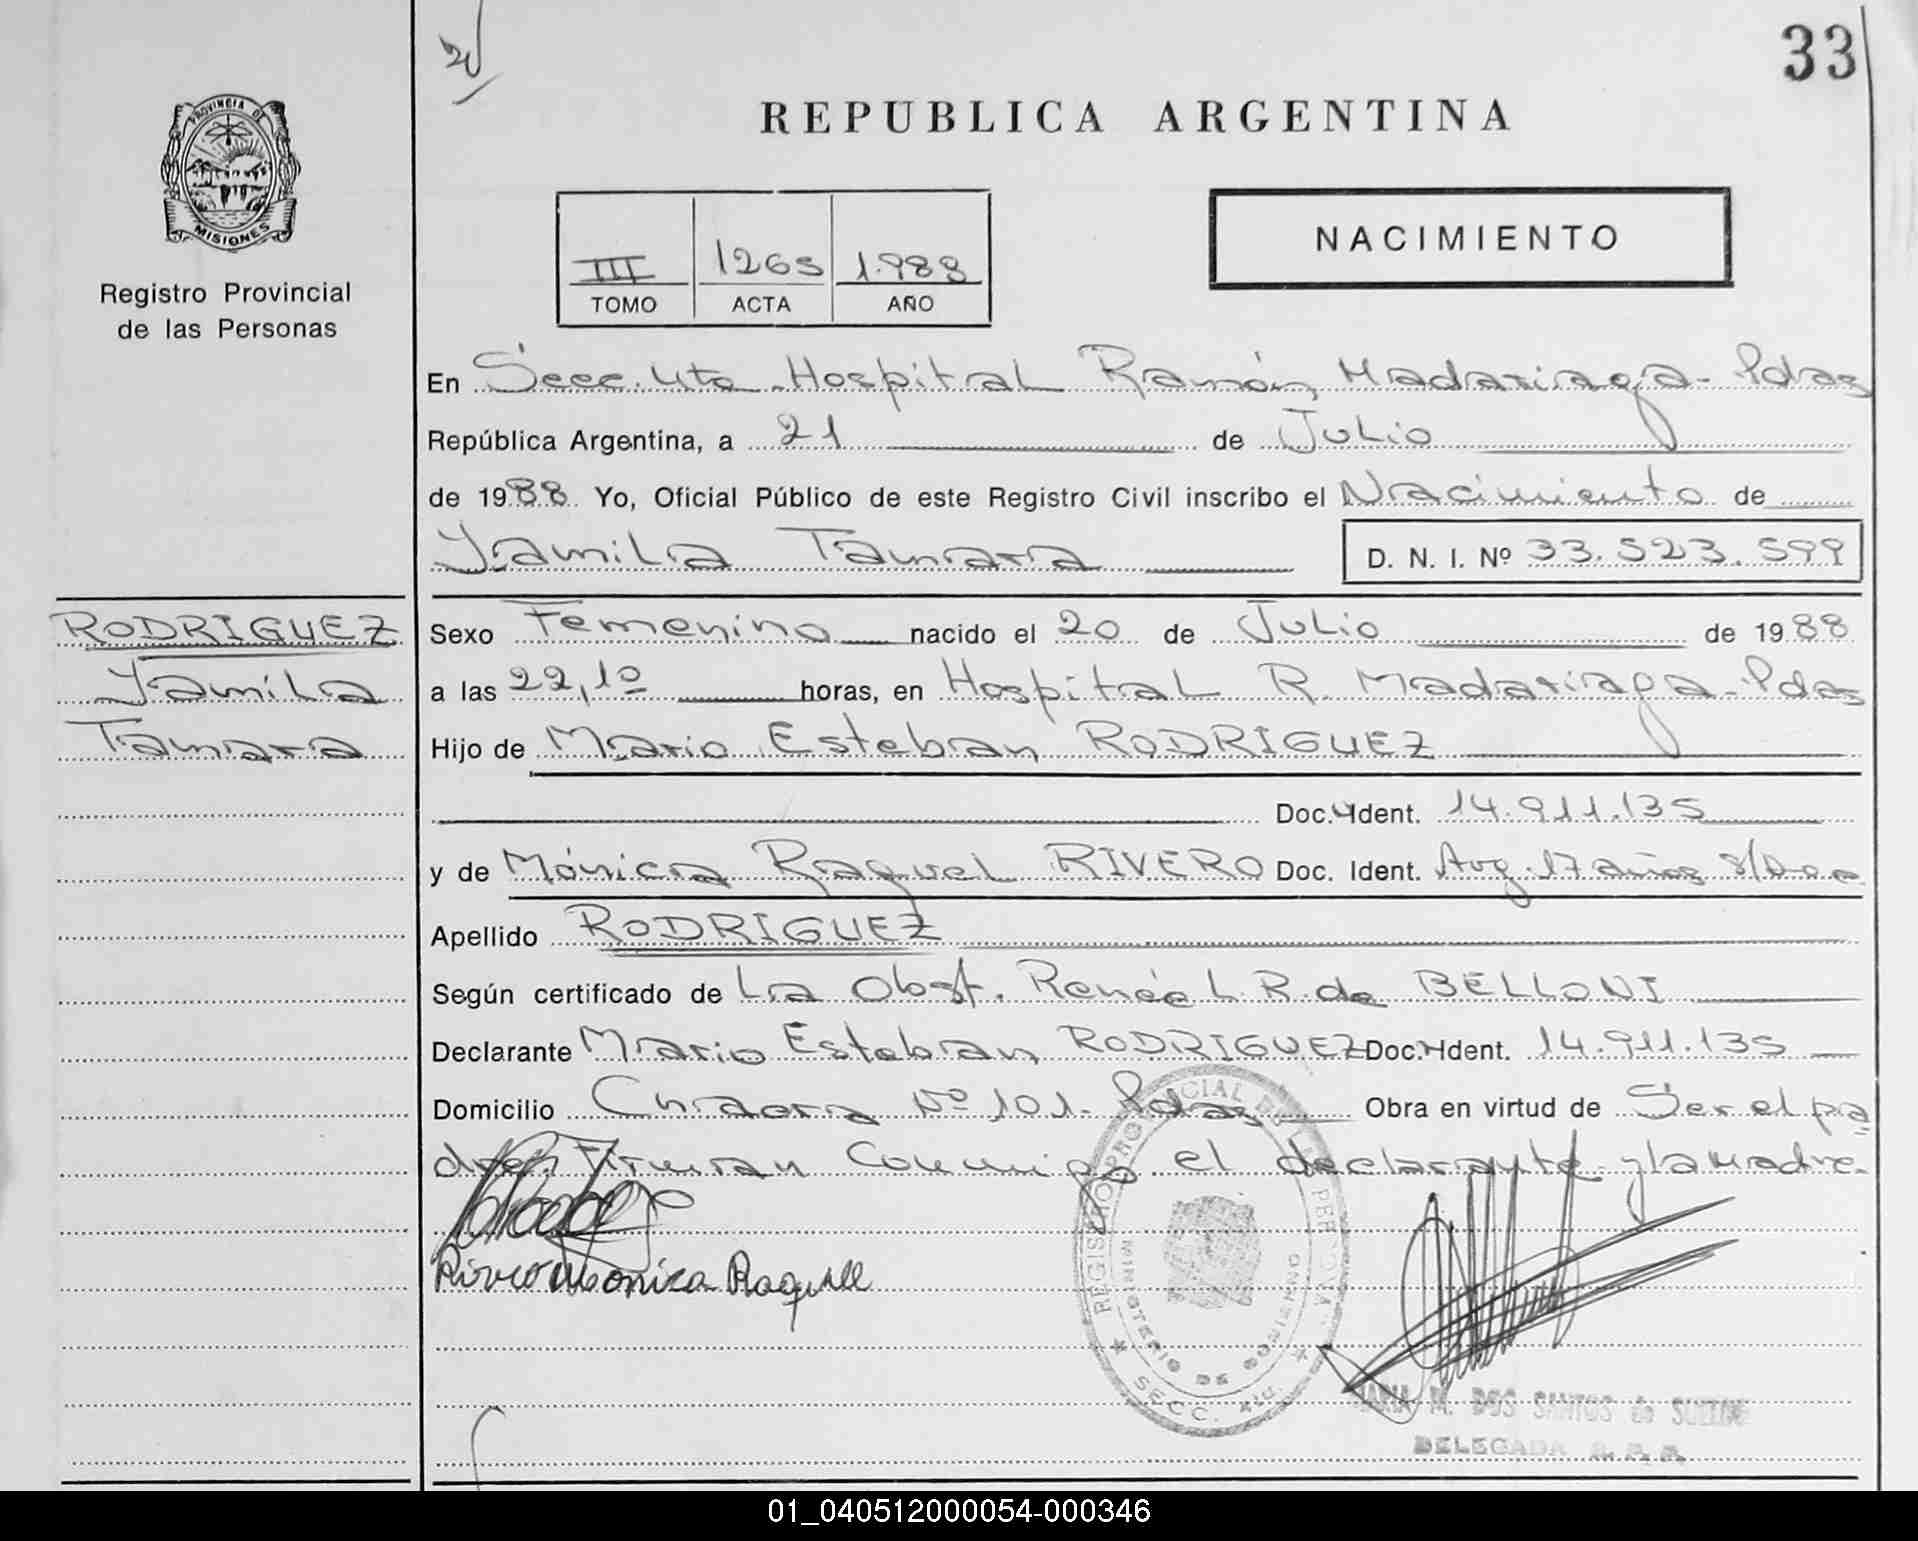 33
REPUBLICA ARGENTINA
PROVINCIA DE
MISIONES
Registro Provincial
de las Personas
III 1265 1.988
TOMO ACTA AÑO
NACIMIENTO
En Secc. 4ta Hospital Ramón Madariaga - Pdas
República Argentina, a 21 de Julio
de 1988 Yo, Oficial Público de este Registro Civil inscribo el Nacimiento de
Yamila Tamara D. N. I. Nº 33.523.599
RODRIGUEZ
Yamila
Tamara
Sexo Femenino nacido el 20 de Julio de 1988
a las 22,10 horas, en Hospital R. Madariaga - Pdas
Hijo de Mario Esteban RODRIGUEZ
Doc. Ident. 14.911.135
y de Mónica Raquel RIVERO Doc. Ident. Arg. 17 años s/Doc
Apellido RODRIGUEZ
Según certificado de La Obst. Renée L. R. de BELLONI
Declarante Mario Esteban RODRIGUEZ Doc. Ident. 14.911.135
Domicilio Nº 101 - Pdas Obra en virtud de Ser el pa
dre. Firman Conmigo el declarante y la Madre.
Rivero Monica Raquel
REGISTRO PROVINCIAL DE LAS PERSONAS
MINISTERIO DE GOBIERNO
SECC. 4ta.
MARIA M. DOS SANTOS de
DELEGADA R. P. P.
01_040512000054-000346